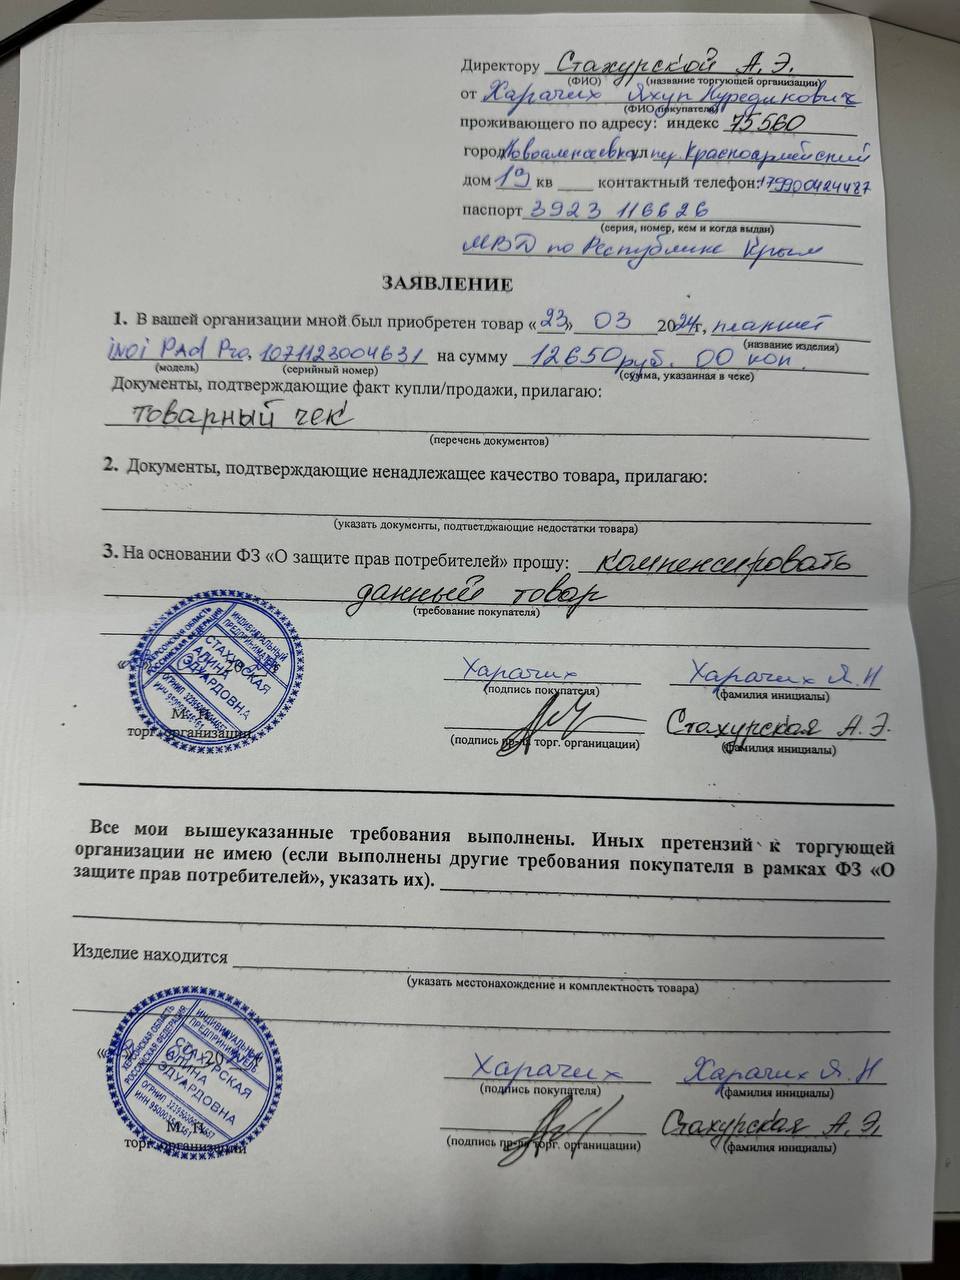 Директору Стахурской А.Э.
(ФИО) (название торгующей организации)
от Харачих Якуп Нуредикович
(ФИО покупателя)
проживающего по адресу: индекс 75560
город Новоалексеевка ул пер. Красноармейский
дом 19 кв ____ контактный телефон: +79900424487
паспорт 3923 116626
(серия, номер, кем и когда выдан)
МВД по Республике Крым
ЗАЯВЛЕНИЕ
1. В вашей организации мной был приобретен товар «23» 03 2024г, планшет
(название изделия)
iNOi PAd Pro, 1071123004631 на сумму 12650 руб. 00 коп.
(модель) (серийный номер) (сумма, указанная в чеке)
Документы, подтверждающие факт купли/продажи, прилагаю:
товарный чек
(перечень документов)
2. Документы, подтверждающие ненадлежащее качество товара, прилагаю:
(указать документы, подтветджающие недостатки товара)
3. На основании ФЗ «О защите прав потребителей» прошу: компенсировать
данный товар
(требование покупателя)
ХЕРСОНСКАЯ ОБЛАСТЬ
РОССИЙСКАЯ ФЕДЕРАЦИЯ
ИНДИВИДУАЛЬНЫЙ
ПРЕДПРИНИМАТЕЛЬ
СТАХУРСКАЯ
АЛИНА
ЭДУАРДОВНА
Харачих Харачих Я.Н
(подпись покупателя) (фамилия инициалы)
М. П.
торг. организации
Стахурская А.Э.
(подпись пр-ля торг. органицации) (фамилия инициалы)
Все мои вышеуказанные требования выполнены. Иных претензий к торгующей
организации не имею (если выполнены другие требования покупателя в рамках ФЗ «О
защите прав потребителей», указать их).
Изделие находится
(указать местонахождение и комплектность товара)
ХЕРСОНСКАЯ ОБЛАСТЬ
РОССИЙСКАЯ ФЕДЕРАЦИЯ
ИНДИВИДУАЛЬНЫЙ
ПРЕДПРИНИМАТЕЛЬ
СТАХУРСКАЯ
АЛИНА
ЭДУАРДОВНА
Харачих Харачих Я.Н
(подпись покупателя) (фамилия инициалы)
М. П.
торг. организации
Стахурская А.Э.
(подпись пр-ля торг. органицации) (фамилия инициалы)